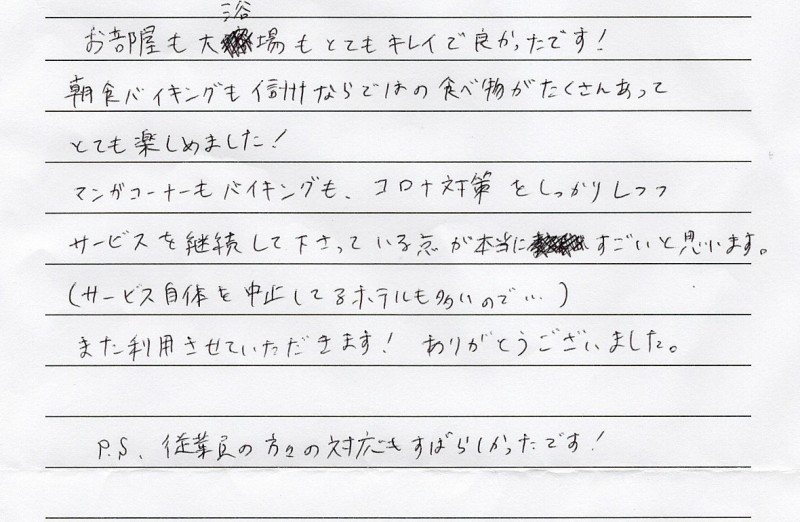 お部屋も大浴場もとてもキレイで良かったです!
朝食バイキングも信州ならではの食べ物がたくさんあって
とても楽しめました!
マンガコーナーもバイキングも、コロナ対策をしっかりしつつ
サービスを継続して下さっている点が本当にすごいと思います。
(サービス自体を中止してるホテルも多いので…)
また利用させていただきます! ありがとうございました。
P.S、従業員の方々の対応もすばらしかったです!